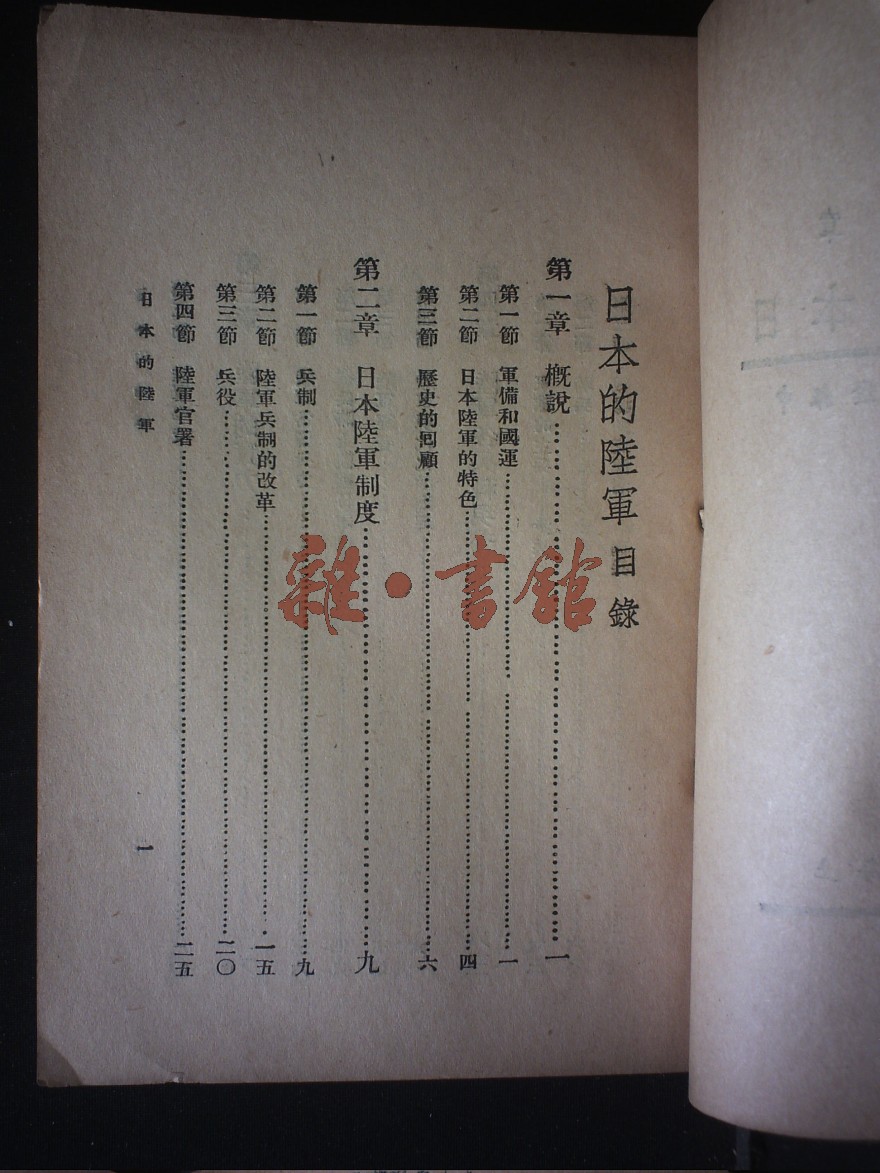 日本的陸軍目錄
第一章 概說……一
第一節 軍備和國運……一
第二節 日本陸軍的特色……四
第三節 歷史的囘顧……六
第二章 日本陸軍制度……九
第一節 兵制……九
第二節 陸軍兵制的改革……一五
第三節 兵役……二〇
第四節 陸軍官署……二五
日本的陸軍
一
雜·書館